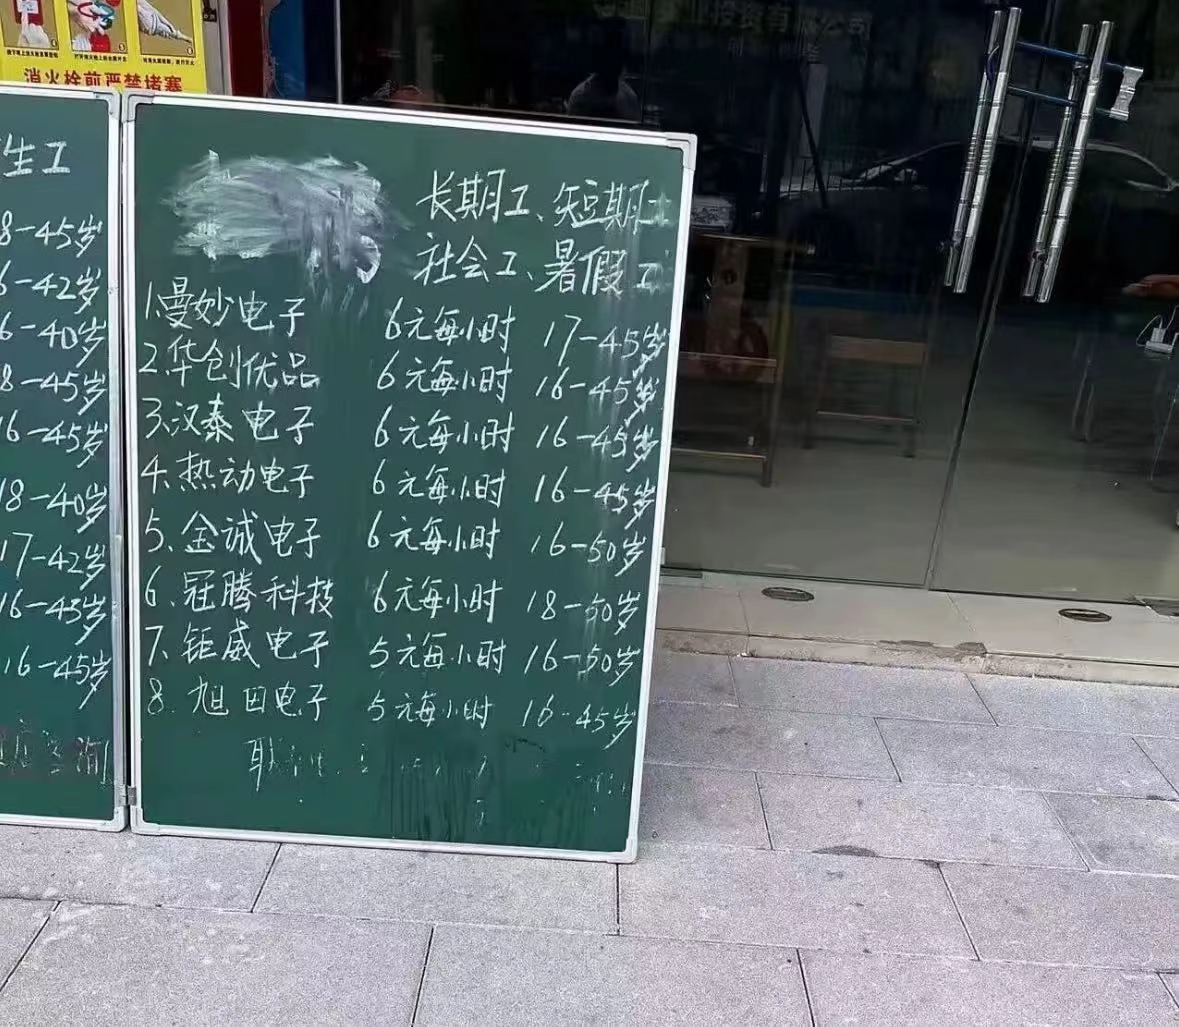 消火栓前严禁堵塞
生工
8-45岁
6-42岁
6-40岁
8-45岁
16-45岁
18-40岁
17-42岁
16-45岁
16-45岁
长期工、短期工
社会工、暑假工
1.曼妙电子 6元每小时 17-45岁
2.华创优品 6元每小时 16-45岁
3.汉泰电子 6元每小时 16-45岁
4.热动电子 6元每小时 16-45岁
5、金诚电子 6元每小时 16-50岁
6、冠腾科技 6元每小时 18-50岁
7、钜威电子 5元每小时 16-50岁
8.旭田电子 5元每小时 16-45岁